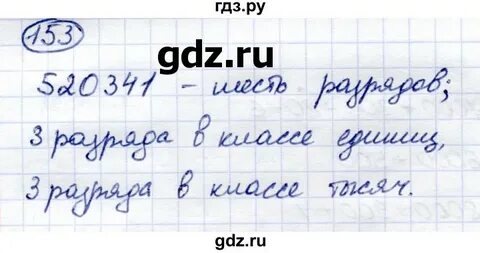 гдз.ру
153
gdz.ru
520341 – шесть разрядов;
3 разряда в классе единиц,
3 разряда в классе тысяч.
gdz.ru